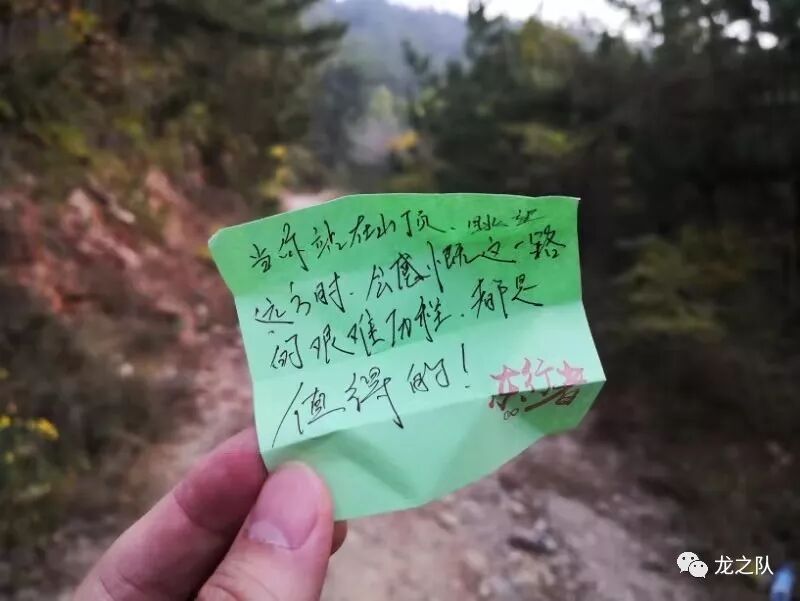 当你站在山顶、眺望
远方时、会感慨这一路
的艰难历程、都是
值得的！
行者
龙之队